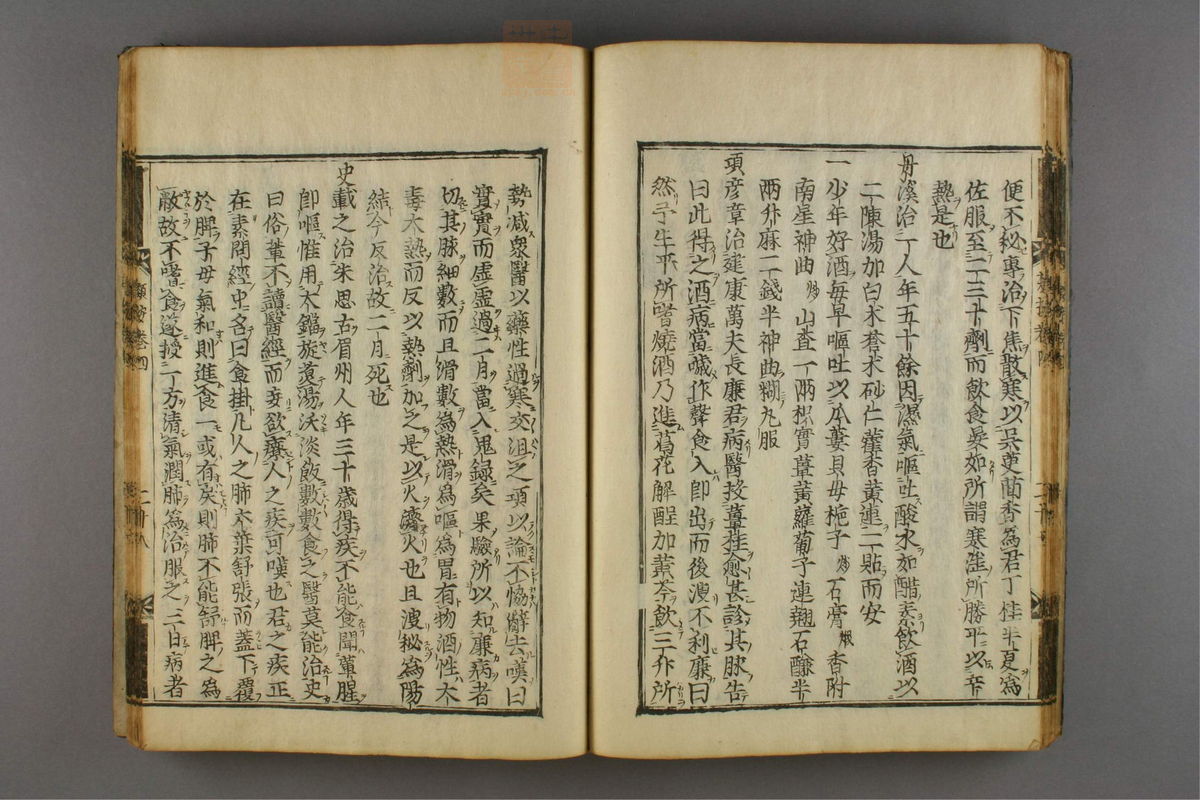 便不秘專治下焦散寒以吳茱茴香為君丁桂半夏為
佐服至二三十劑而飲食晏如所謂寒淫所勝平以辛
熱是也
丹溪治一人年五十餘因濕氣嘔吐酸水如醋素飲酒以
二陳湯加白朮蒼朮砂仁藿香黃連二貼而安
一少年好酒每早嘔吐以瓜蔞貝母梔子炒石膏煅香附
南星神曲炒山查一兩枳實薑黃蘿蔔子連翹石鹼半
兩升麻二錢半神曲糊丸服
項彥章治建康萬夫長廉君病醫投薑桂愈甚診其脉告
曰此得之酒病當噦作聲食入卽出而後溲不利廉曰
然予生平所嗜燒酒乃進葛花解酲加黃芩飲三升所
勢減衆醫以藥性過寒交沮之項以論不協辭去嘆曰
實實而虛虛過二月當入鬼録矣果驗所以知廉病者
切其脉細數而且滑數為熱滑為嘔為胃有物酒性大
毒大熱而反以熱劑加之是以火濟火也且溲秘為陽
結今反治故二月死也
史載之治朱思古眉州人年三十歲得疾不能食聞葷腥
卽嘔惟用大鐺旋煑湯沃淡飯數數食之醫莫能治史
曰俗輩不讀醫經而妄欲療人之疾可嘆也君之疾正
在素問經中名曰食掛凡人之肺六葉舒張而蓋下覆
於脾子母氣和則進食一或有戾則肺不能舒脾之為
蔽故不嗜食遂授一方清氣潤肺為治服之三日病者
卷四
二十八